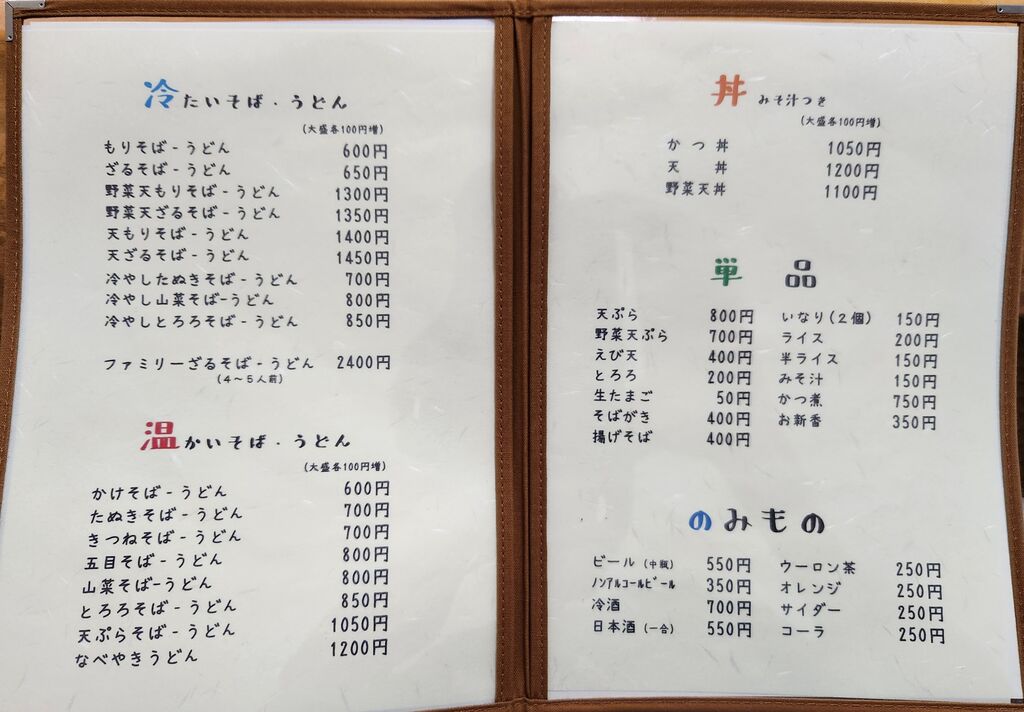 冷たいそば・うどん
(大盛各100円増)
もりそば-うどん 600円
ざるそば-うどん 650円
野菜天もりそば-うどん 1300円
野菜天ざるそば-うどん 1350円
天もりそば-うどん 1400円
天ざるそば-うどん 1450円
冷やしたぬきそば-うどん 700円
冷やし山菜そば-うどん 800円
冷やしとろろそば-うどん 850円
ファミリーざるそば-うどん 2400円
(4～5人前)
温かいそば・うどん
(大盛各100円増)
かけそば-うどん 600円
たぬきそば-うどん 700円
きつねそば-うどん 700円
五目そば-うどん 800円
山菜そば-うどん 800円
とろろそば-うどん 850円
天ぷらそば-うどん 1050円
なべやきうどん 1200円
丼 みそ汁つき
(大盛各100円増)
かつ丼 1050円
天 丼 1200円
野菜天丼 1100円
単 品
天ぷら 800円
野菜天ぷら 700円
えび天 400円
とろろ 200円
生たまご 50円
そばがき 400円
揚げそば 400円
いなり(2個) 150円
ライス 200円
半ライス 150円
みそ汁 150円
かつ煮 750円
お新香 350円
のみもの
ビール(中瓶) 550円
ﾉﾝｱﾙｺｰﾙﾋﾞｰﾙ 350円
冷酒 700円
日本酒(一合) 550円
ウーロン茶 250円
オレンジ 250円
サイダー 250円
コーラ 250円